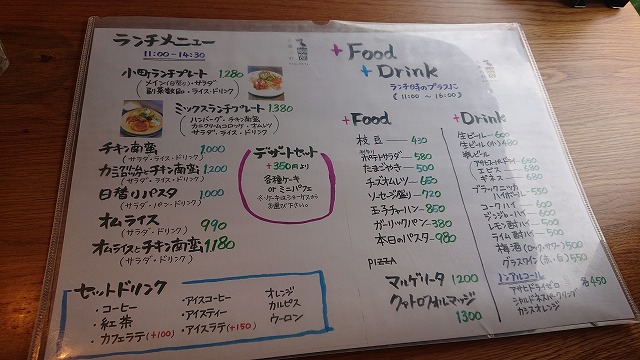 ランチメニュー
11:00~14:30
小町ランチプレート 1,280
(メイン(日替り)・サラダ
副菜数品・ライス・ドリンク)
ミックスランチプレート 1,380
(ハンバーグ・チキン南蛮
カニクリームコロッケ・オムレツ
サラダ・ライス・ドリンク)
チキン南蛮 1,000
(サラダ・ライス・ドリンク)
チキン南蛮 1,200
(サラダ・ライス・ドリンク)
日替りパスタ 1,000
(サラダ・ドリンク)
オムライス 990
(サラダ・ドリンク)
オムライスとチキン南蛮 1,180
(サラダ・ドリンク)
デザートセット
+350円より
各種ケーキ
or ミニパフェ
※ケーキはショーケースから
お選び下さい。
セットドリンク
・コーヒー
・紅茶
・カフェラテ(+100)
・アイスコーヒー
・アイスティー
・アイスラテ(+150)
オレンジ
カルピス
ウーロン
+Food
+Drink
ランチ時のプラスに
(11:00 ~ 16:00)
+Food
枝豆 430
ポテトサラダ 580
たまごやき 500
チーズオムレツ 650
ソーセージ盛り 720
玉子チャーハン 850
ガーリックパン 380
本日のパスタ 980
PIZZA
マルゲリータ 1200
クアトロフォルマッジ 1300
+Drink
生ビール 600
生ビール(小) 480
瓶ビール
アサヒスーパードライ 650
エビス
ギネス 680
ブラックニッカ
ハイボール 550
コークハイ
ジンジャーハイ 600
レモン酎ハイ
ライム酎ハイ 500
梅酒(ロック・ソーダ) 550
グラスワイン(赤・白) 550
ノンアルコール
アサヒドライゼロ 各450
シャルドネスパークリング
カシスオレンジ